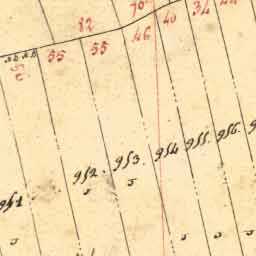 82
70
40
34
46
55
55
951.
952.
953.
954
955.
956.